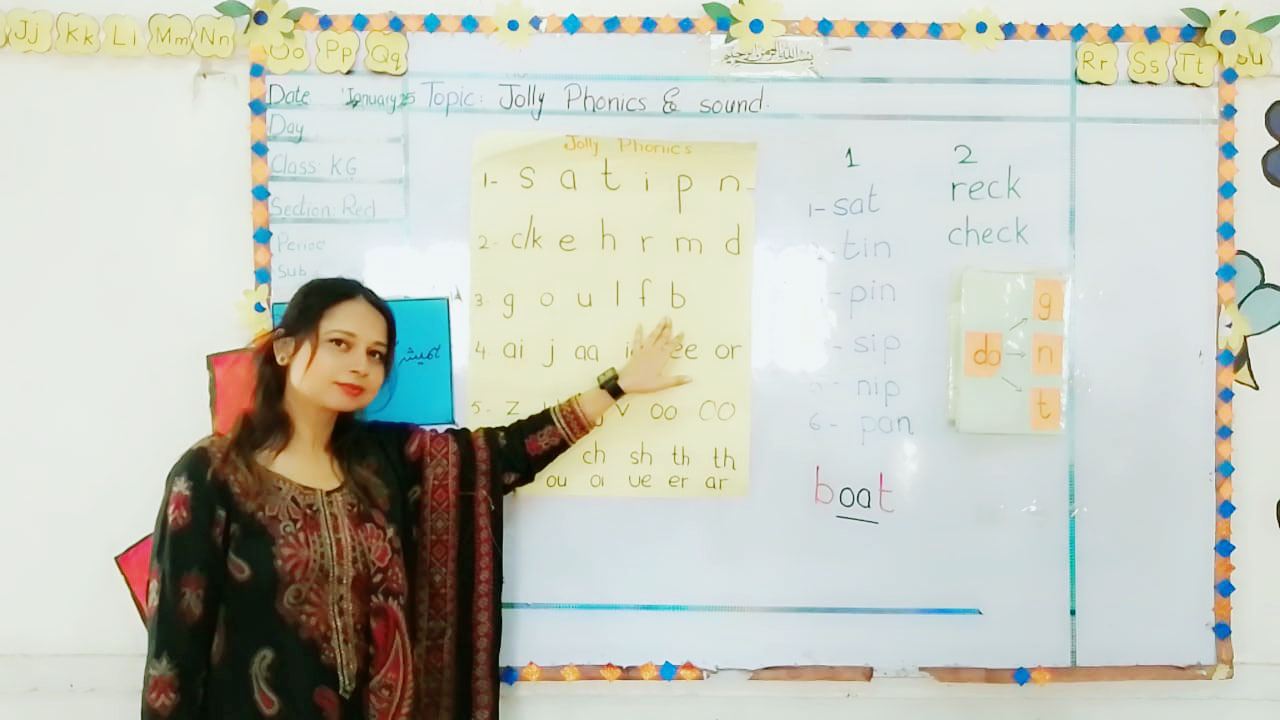 Jj Kk Ll Mm Nn Oo Pp Qq Rr Ss Tt Uu
بسم اللہ الرحمن الرحیم
Date January 25 Topic: Jolly Phonics & sound.
Day
Class: KG
Section: Red
Period
Sub
Jolly Phonics
1- s a t i p n
2- c/k e h r m d
3- g o u l f b
4 ai j aa ee or
5- z v oo oo
ch sh th th
ou oi ue er ar
1
1- sat
tin
- pin
- sip
- nip
6- pan
boat
2
reck
check
do g n t